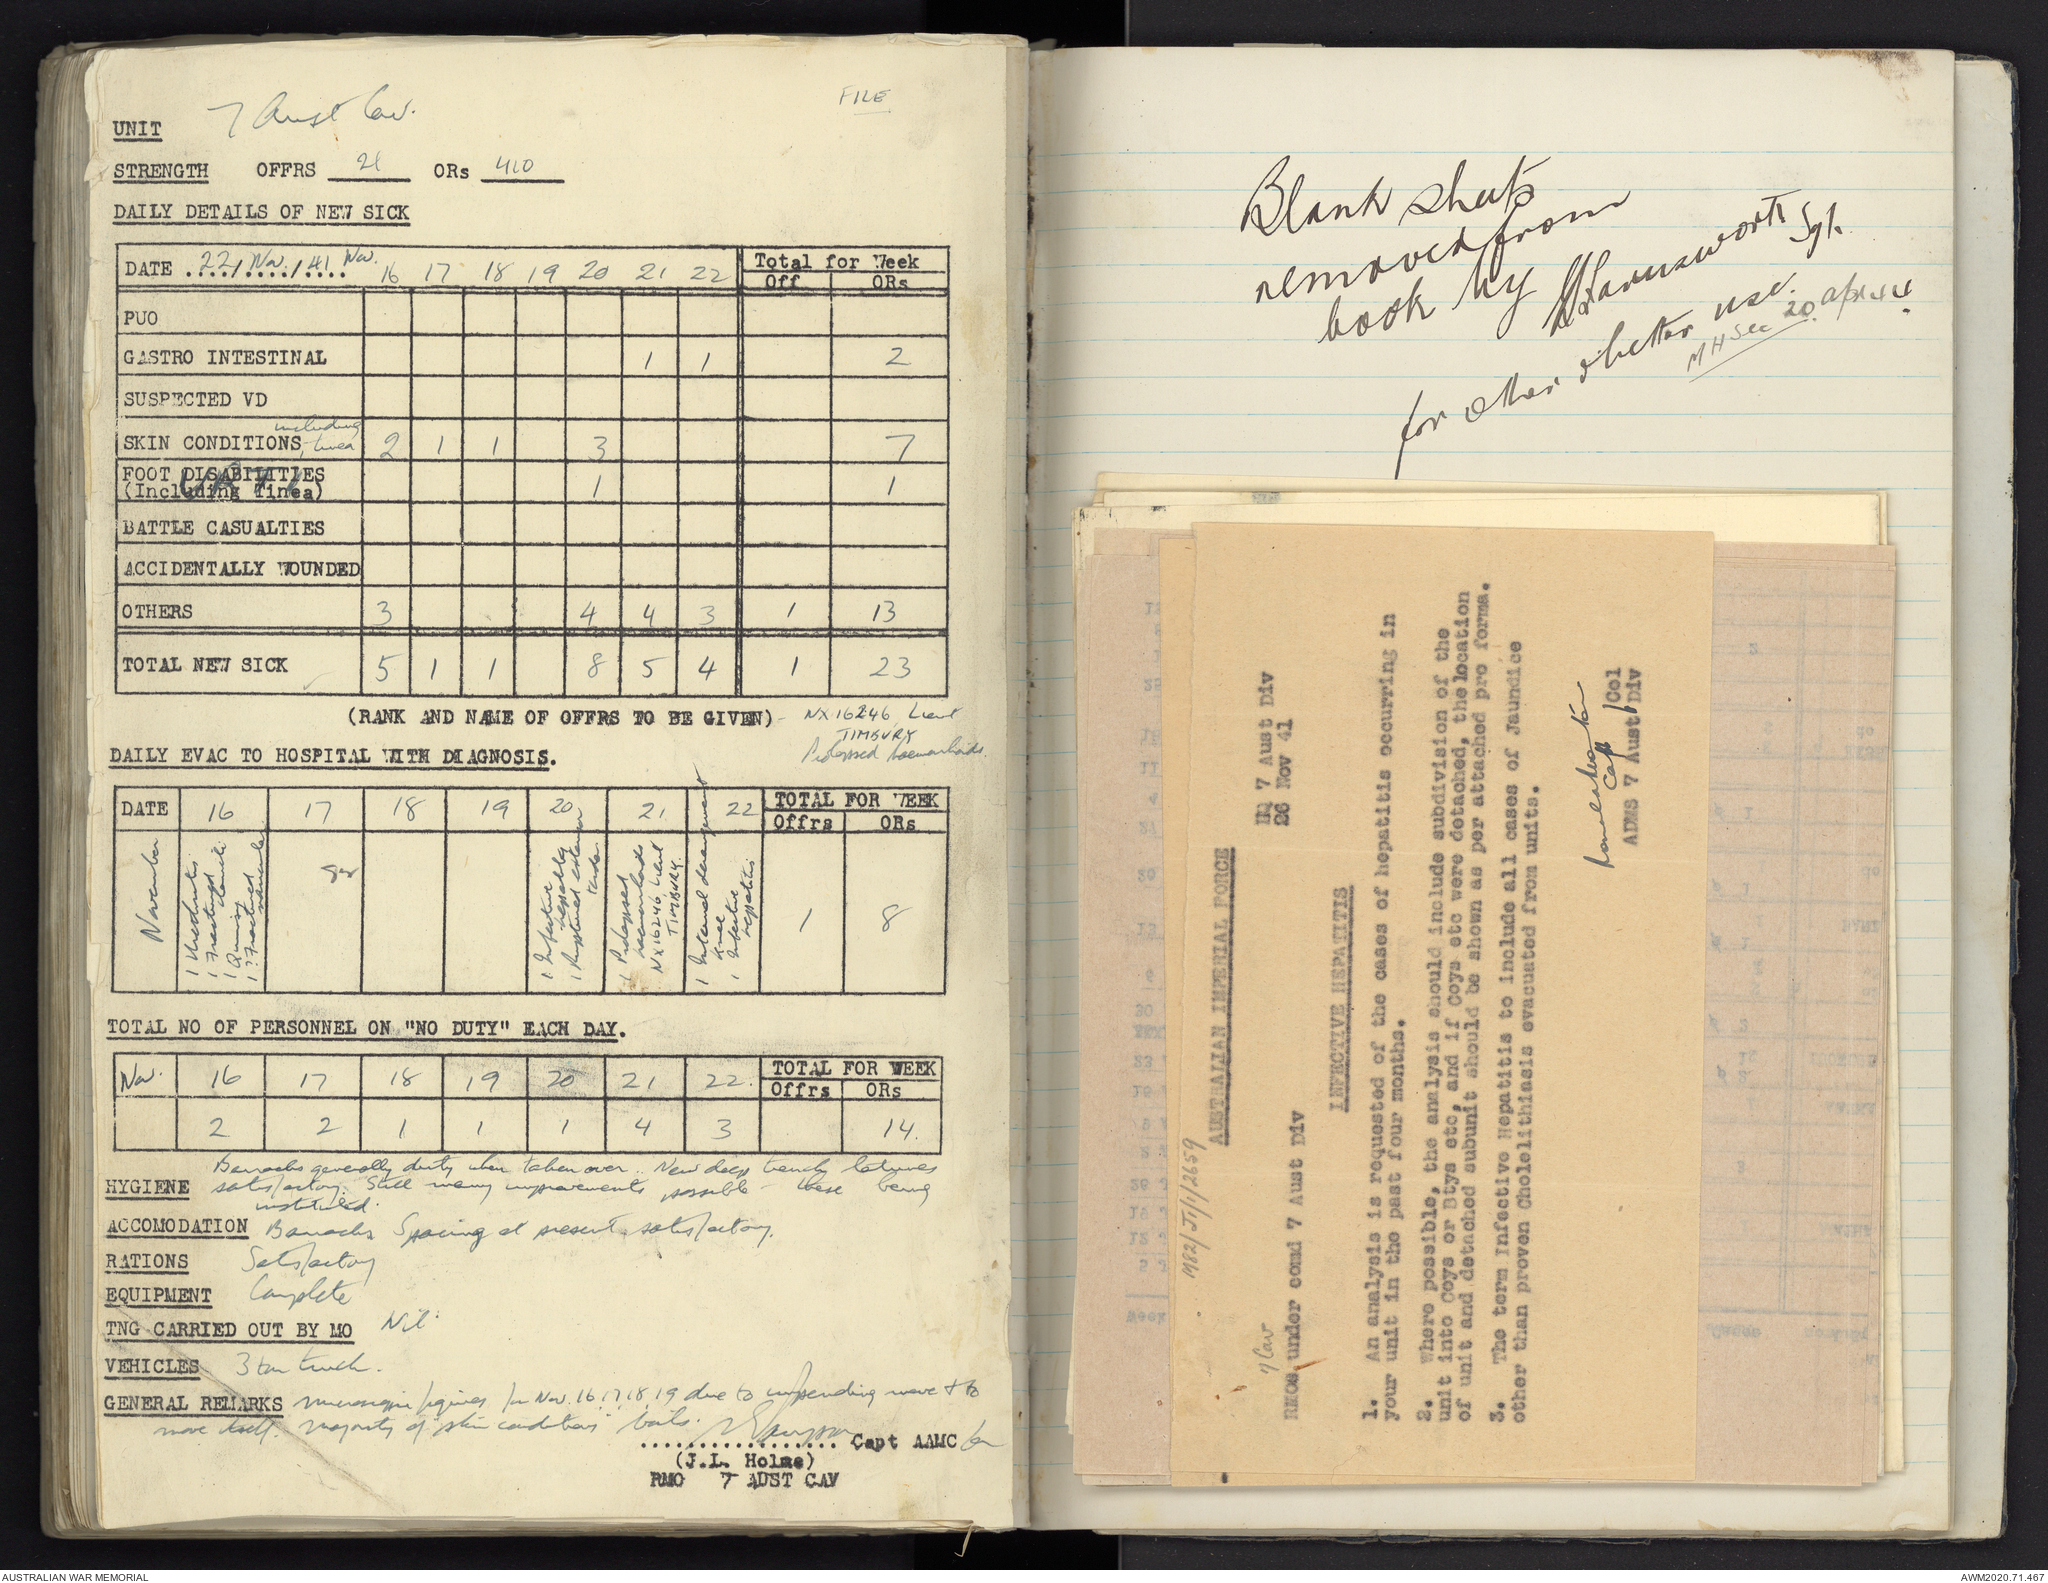 FILE
UNIT 7 Aust Cav.
STRENGTH OFFRS 21 ORs 410
DAILY DETAILS OF NEW SICK
DATE 22/Nov./41 Nov. 16 17 18 19 20 21 22 Total for Week
Off ORs
PUO
GASTRO INTESTINAL 1 1 2
SUSPECTED VD
SKIN CONDITIONS including tinea 2 1 1 3 7
FOOT DISABILITIES
(Including Tinea) 1 1
BATTLE CASUALTIES
ACCIDENTALLY WOUNDED
OTHERS 3 4 4 3 1 13
TOTAL NEW SICK 5 1 1 8 5 4 1 23
(RANK AND NAME OF OFFRS TO BE GIVEN) - NX16246 Lieut
TIMBURY
Prolapsed haemorrhoids.
DAILY EVAC TO HOSPITAL WITH DIAGNOSIS.
DATE 16 17 18 19 20 21 22 TOTAL FOR WEEK
Offrs ORs
November
1 Urethritis
1 Fractured
1 Quinsy
1 ? Fractured
1 Infective
hepatitis
1 Ruptured extensor
tendon
1 Prolapsed
haemorrhoids
NX16246 Lieut
TIMBURY.
1 Internal derangement
knee
1 Infective
hepatitis
1 8
TOTAL NO OF PERSONNEL ON "NO DUTY" EACH DAY.
Nov. 16 17 18 19 20 21 22. TOTAL FOR WEEK
Offrs ORs
2 2 1 1 1 4 3 14.
HYGIENE Barracks generally dirty when taken over. New deep trench latrines
satisfactory. Still many improvements possible - these being
instituted.
ACCOMODATION Barracks Spacing at present satisfactory.
RATIONS Satisfactory
EQUIPMENT Complete
TNG CARRIED OUT BY MO Nil.
VEHICLES 3 ton truck.
GENERAL REMARKS figures for Nov. 16, 17, 18, 19 due to impending move & to
move itself. Majority of "skin conditions" boils.
.................. Capt AAMC for
(J.L. Holme)
RMO 7 AUST CAV
Blank sheets
removed from
book by Harmsworth Sgt.
for other & better use.
MH Sec 20 Apr 44.
M82/J1/1/2659
AUSTRALIAN IMPERIAL FORCE
HQ 7 Aust Div
26 Nov 41
7 Cav
RMOs under comd 7 Aust Div
INFECTIVE HEPATITIS
1. An analysis is requested of the cases of hepatitis occurring in
your unit in the past four months.
2. Where possible, the analysis should include subdivision of the
unit into Coys or Btys etc, and if Coys etc were detached, the location
of unit and detached subunit should be shown as per attached pro forma.
3. The term Infective Hepatitis to include all cases of Jaundice
other than proven Cholelithiasis evacuated from units.
Capt
/Col
ADMS 7 Aust Div
AUSTRALIAN WAR MEMORIAL
AWM2020.71.467